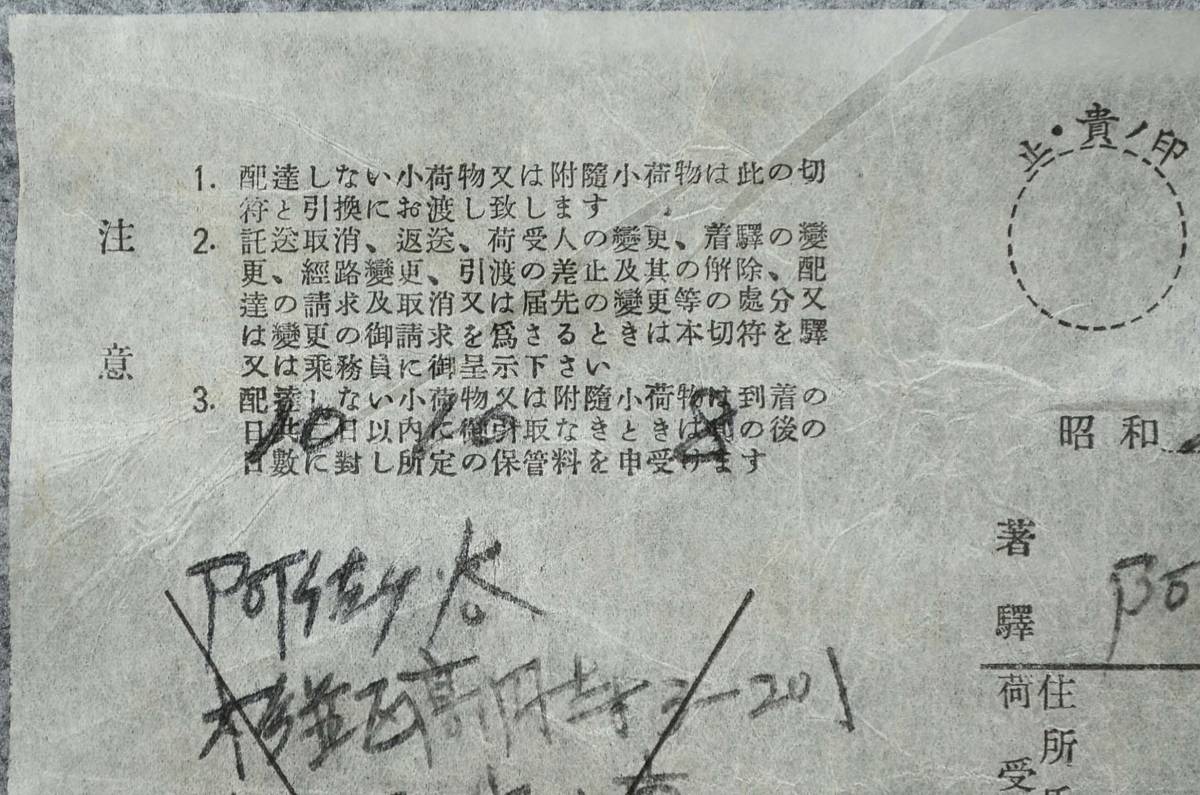 注意
1. 配達しない小荷物又は附隨小荷物は此の切
符と引換にお渡し致します
2. 託送取消、返送、荷受人の變更、着驛の變
更、經路變更、引渡の差止及其の解除、配
達の請求及取消又は届先の變更等の處分又
は變更の御請求を爲さるときは本切符を驛
又は乘務員に御呈示下さい
3. 配達しない小荷物又は附隨小荷物は到着の
日共日以内に御引取なきときは其の後の
日數に對し所定の保管料を申受けます
10 10 8
杉並区高円寺 2-201
止・貴ノ印
昭和
著驛
阿
荷受
住所